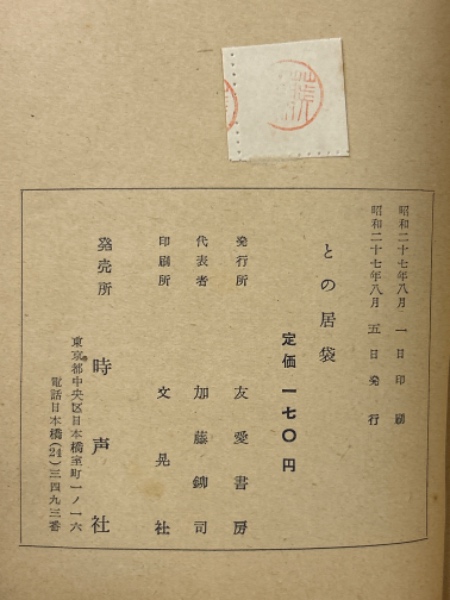 昭和二十七年八月 一日印刷
昭和二十七年八月 五日発行
との居袋
定価 一七〇円
発行所 友愛書房
代表者 加藤鉚司
印刷所 文晃社
発売所 時声社
東京都中央区日本橋室町一ノ一六
電話日本橋(24)三四九三番